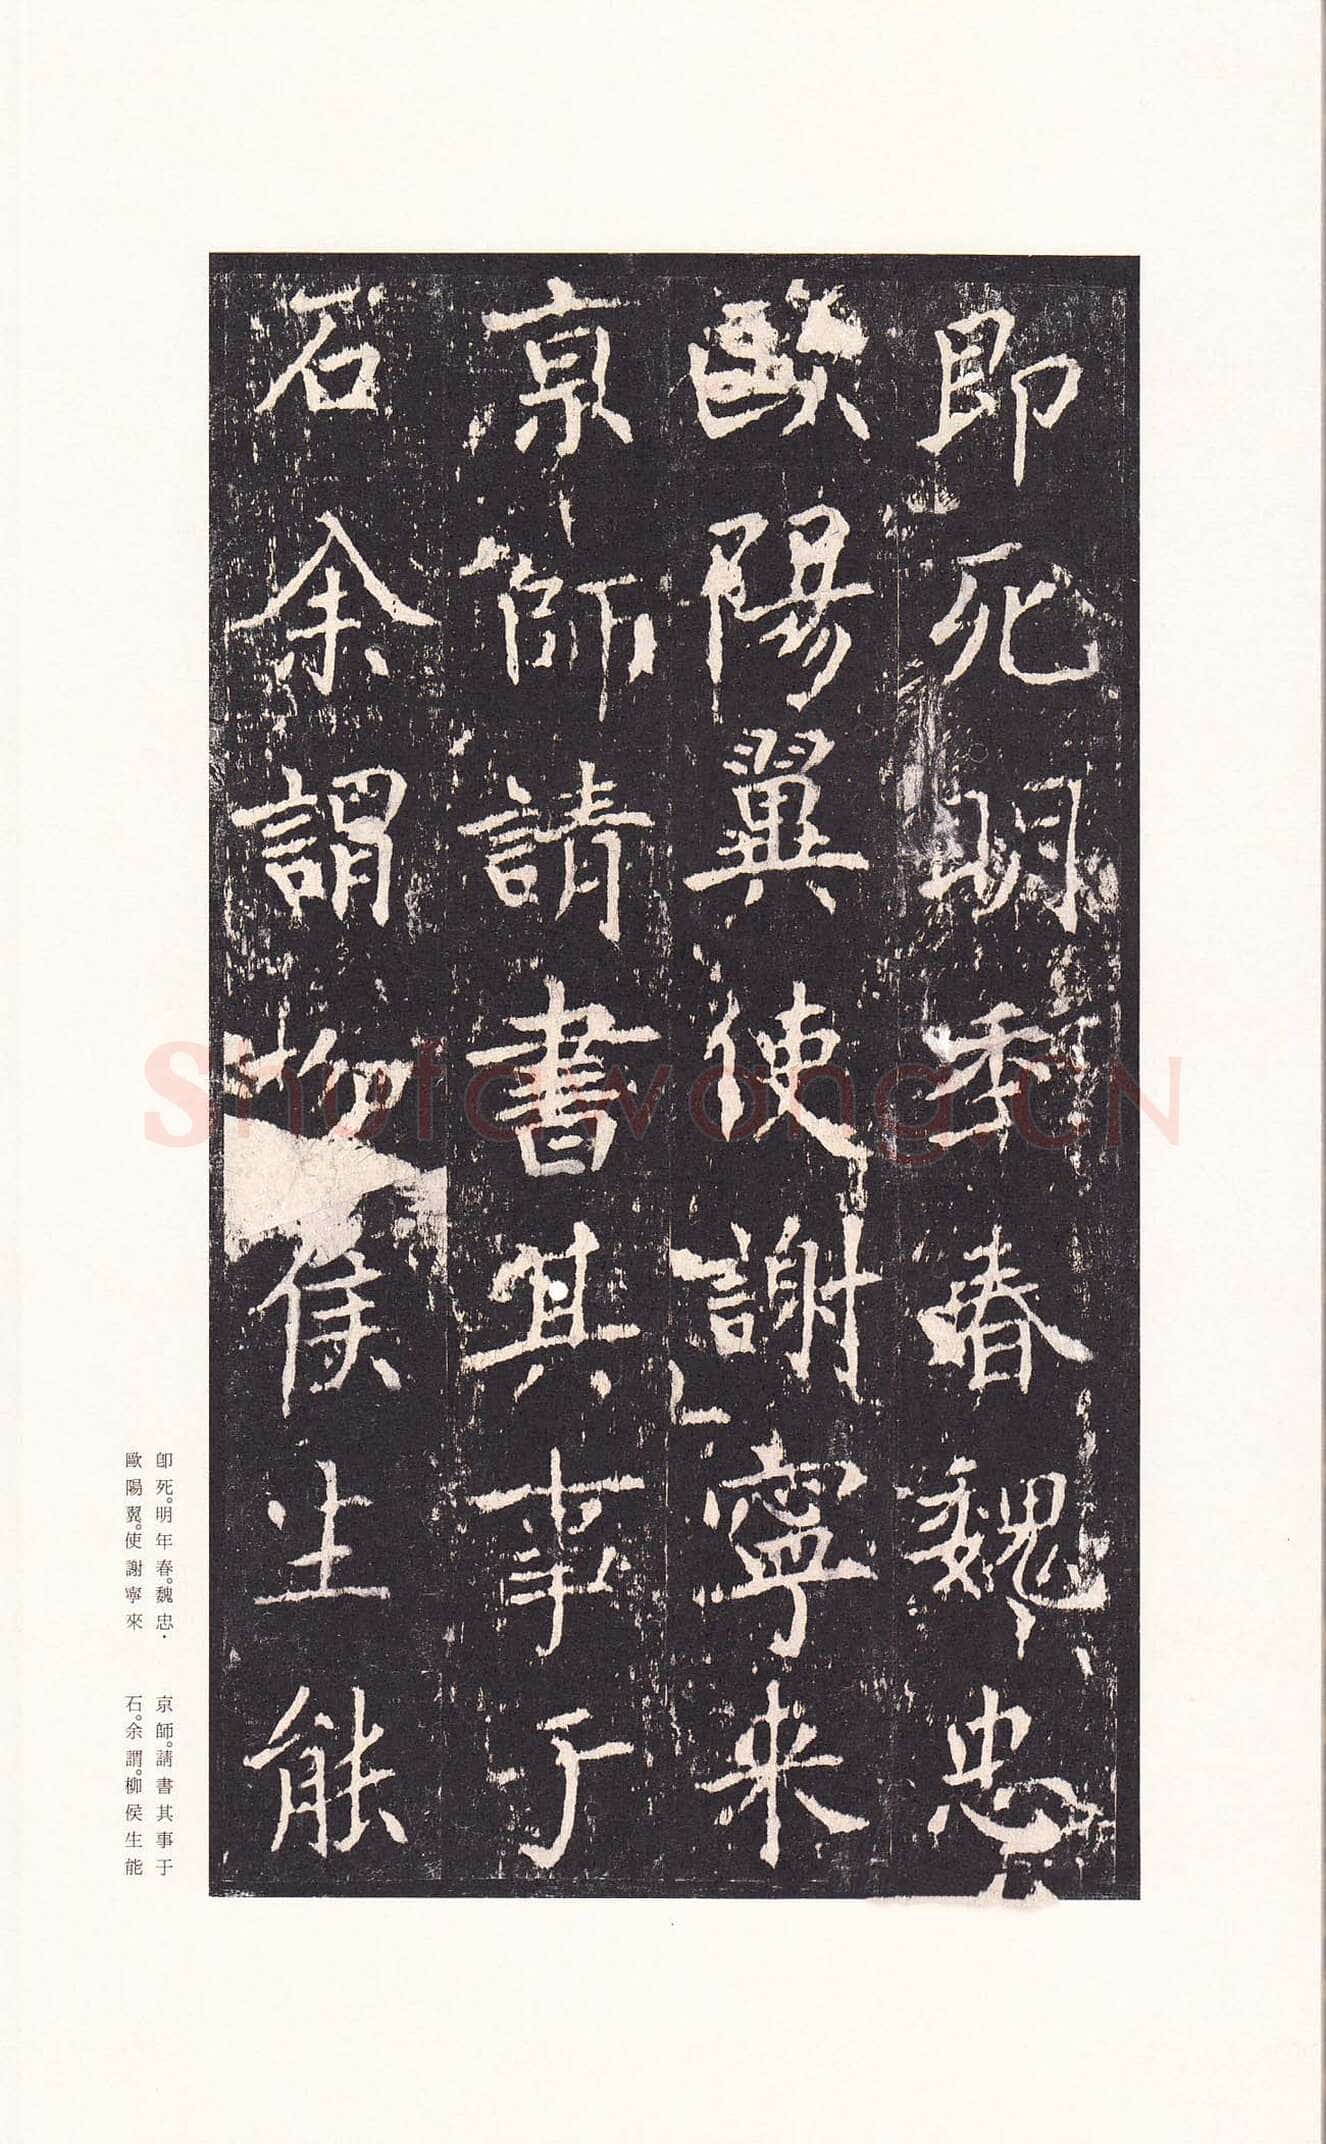 即死明年春魏忠
歐陽翼使謝寧來
京師請書其事于
石余謂柳侯生能
即死。明年春。魏忠·
歐陽翼。使謝寧來
京師。請書其事于
石。余謂。柳侯生能
Shufawang.CN